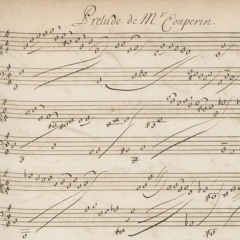 Prelude de Mr Couperin.